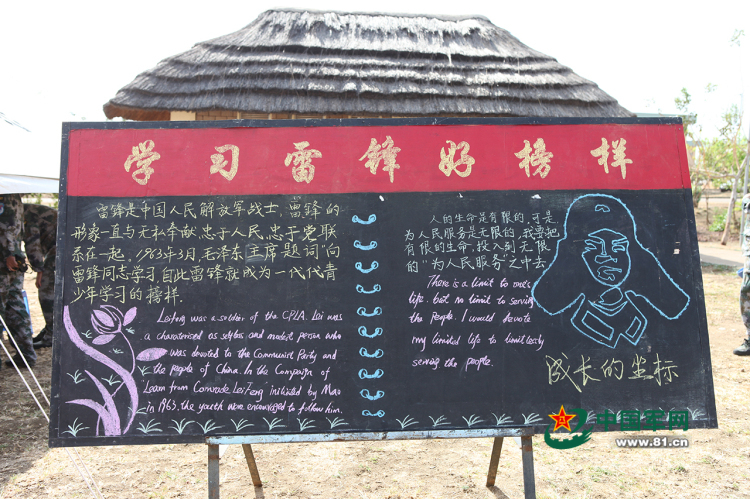 学习雷锋好榜样
雷锋是中国人民解放军战士,雷锋的
形象一直与无私奉献,忠于人民,忠于党联
系在一起,1963年3月,毛泽东主席题词"向
雷锋同志学习,自此雷锋就成为一代代青
少年学习的榜样.
Leifeng was a soldier of the CPLA. Lei was
a characterised as selfless and modest person who
was devoted to the Communist Party and
the people of China. In the Campaign of
Learn from Comrade Lei Feng initiated by Mao
in 1963. the youth were encouraged to follow him.
人的生命是有限的,可是
为人民服务是无限的,我要把
有限的生命,投入到无限
的"为人民服务"之中去
There is a limit to one's
life. but no limit to serving
the people. I would devote
my limited life to limitlessly
serving the people.
成长的坐标
中国军网
www.81.cn